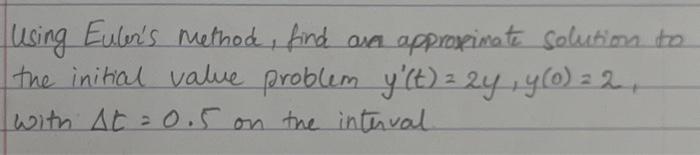 Using Euler's Method, find an approximate solution to
the initial value problem y'(t) = 2y, y(0) = 2,
with Δt = 0.5 on the interval